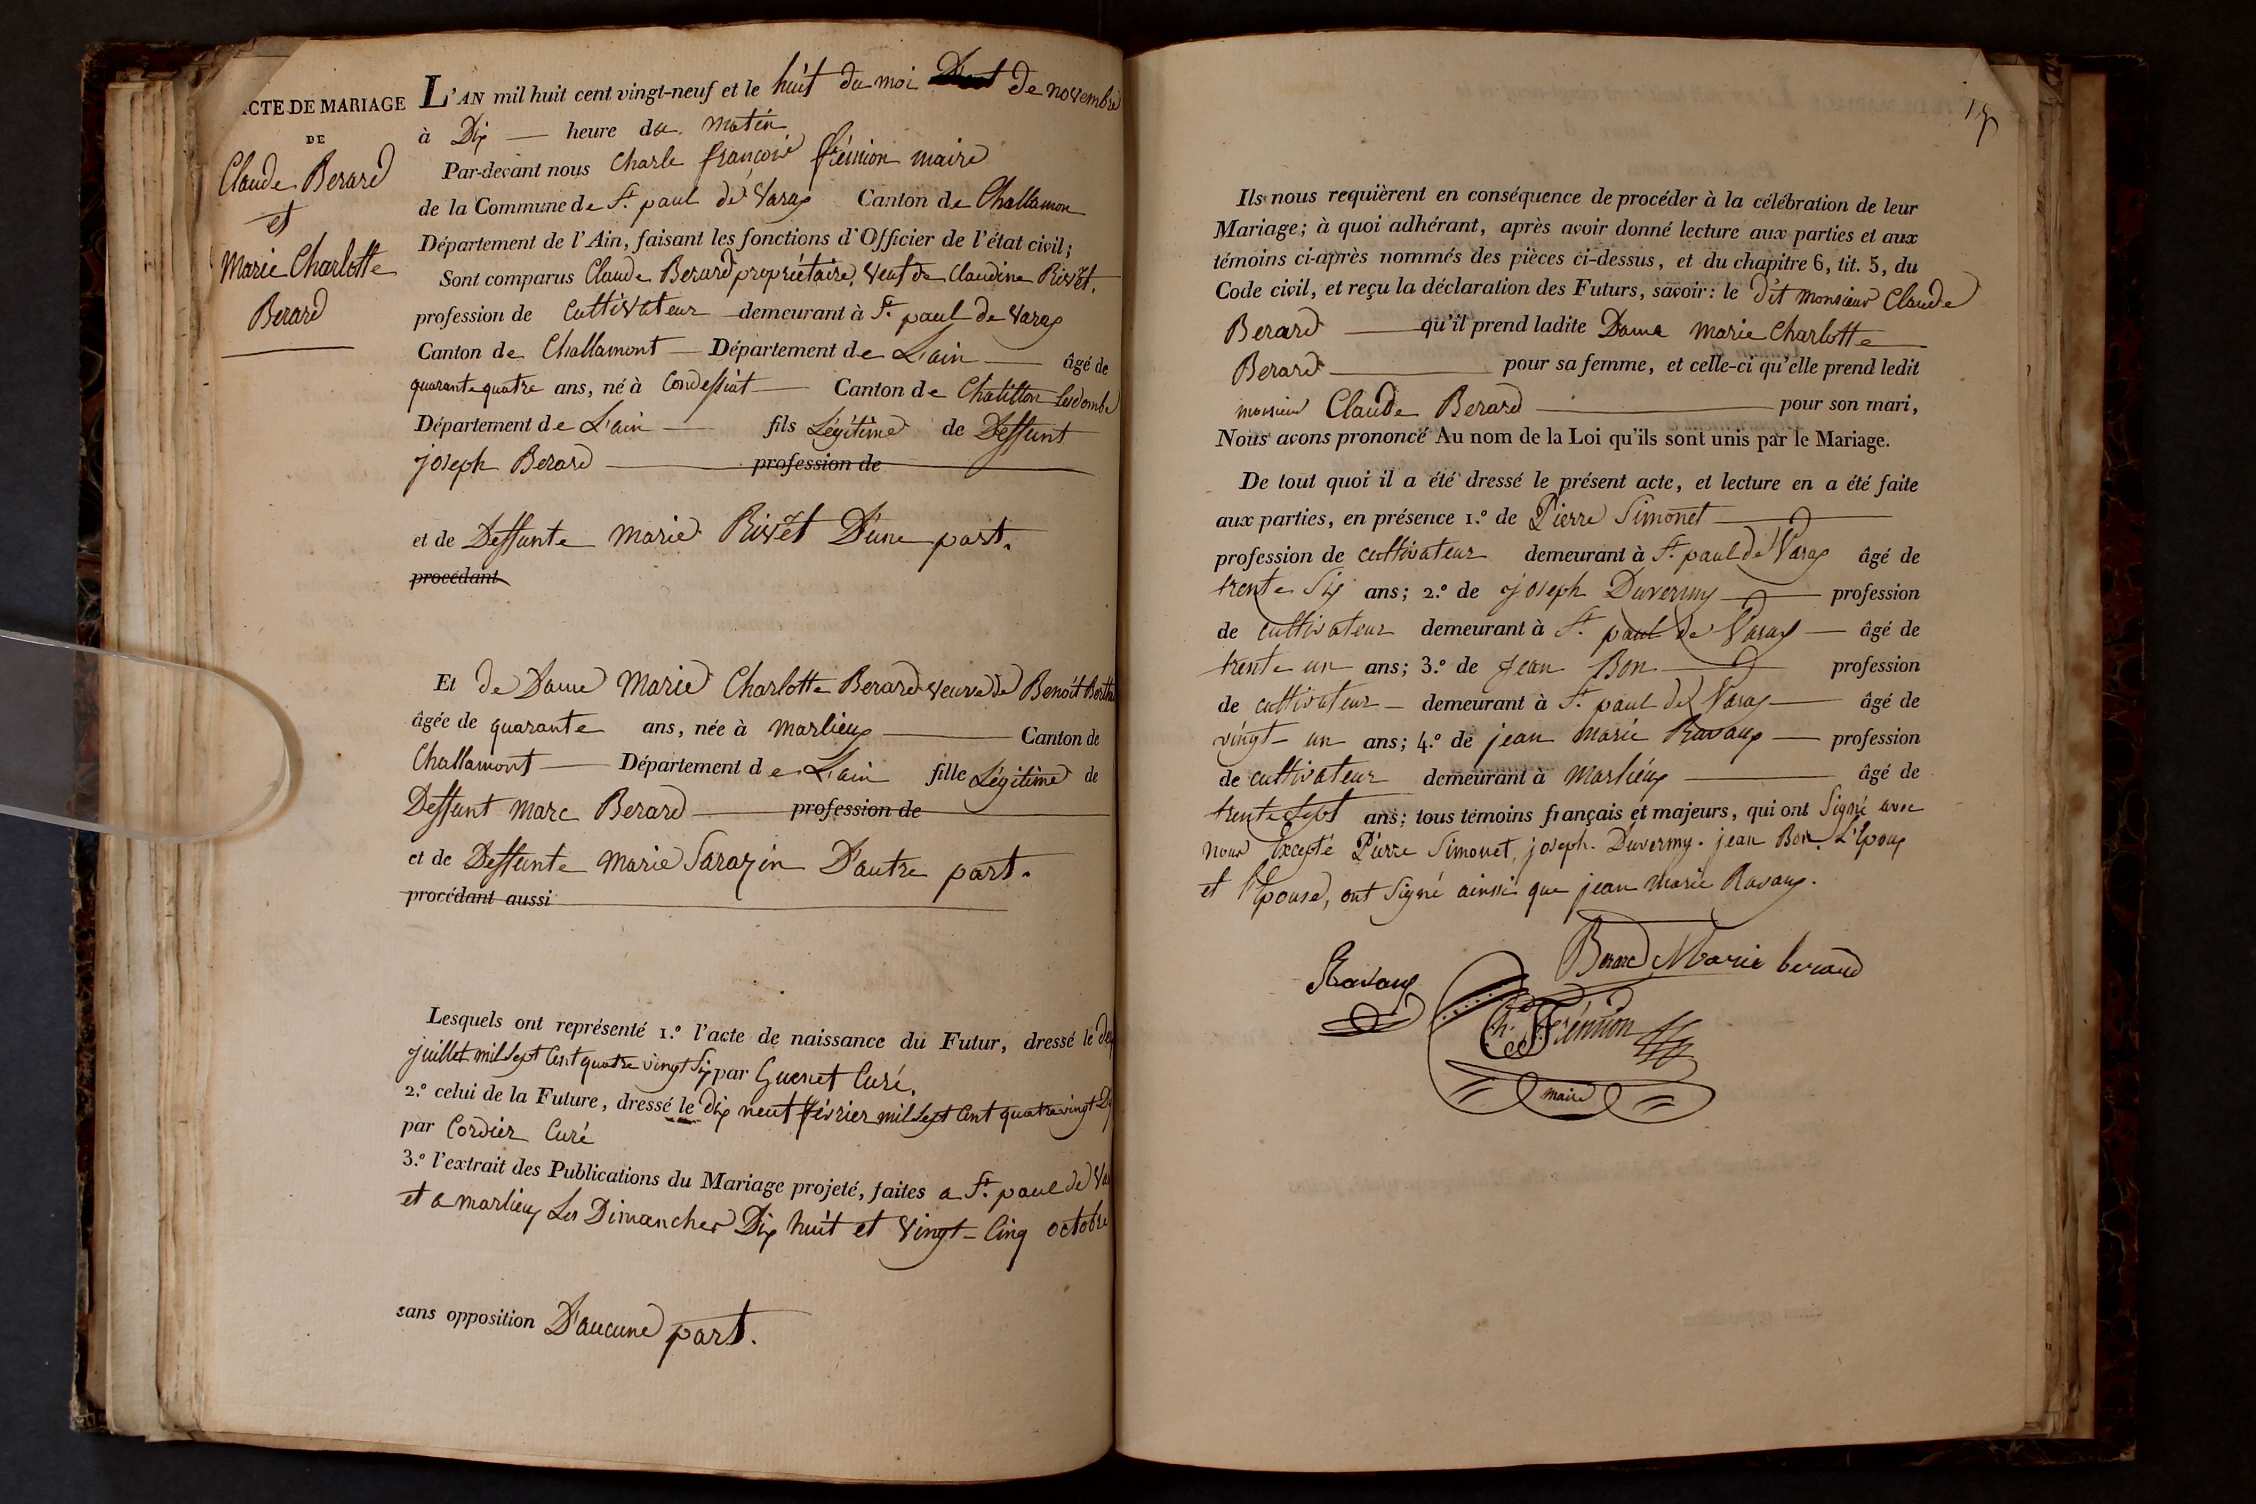 ACTE DE MARIAGE
DE
Claude Berard
et
Marie Charlotte
Berard
L'AN mil huit cent vingt-neuf et le huit du moi de novembre
à Dix heure du matin
Par-devant nous Charle françois frémion maire
de la Commune de St. paul de Varax Canton de Challamon
Département de l'Ain, faisant les fonctions d'Officier de l'état civil;
Sont comparus Claude Berard propriétaire, Veuf de Claudine Rivet.
profession de Cultivateur demeurant à St. paul de Varax
Canton de Challamont Département de L'ain âgé de
quarante quatre ans, né à Condessiat Canton de Chatillon lesdombe
Département de L'ain fils Légitime de Deffunt
joseph Berard profession de
et de Deffunte marie Rivet D'une part.
procédant
Et de Dame Marie Charlotte Berard veuve de Benoit
âgée de quarante ans, née à marlieux Canton de
Challamont Département de L'ain fille Légitime de
Deffunt marc Berard profession de
et de Deffunte marie Sarazin D'autre part.
procédant aussi
Lesquels ont représenté 1.º l'acte de naissance du Futur, dressé le
juillet mil sept Cent quatre vingt Six par Guenet Curé.
2.º celui de la Future, dressé le dix neuf février mil Sept Cent quatre vingt
par Cordier Curé
3.º l'extrait des Publications du Mariage projeté, faites a St. paul de
et a marlieux Les Dimanches Dix huit et Vingt-Cinq octobre
sans opposition D'aucune part.
17
Ils nous requièrent en conséquence de procéder à la célébration de leur
Mariage; à quoi adhérant, après avoir donné lecture aux parties et aux
témoins ci-après nommés des pièces ci-dessus, et du chapitre 6, tit. 5, du
Code civil, et reçu la déclaration des Futurs, savoir: le dit monsieur Claude
Berard qu'il prend ladite Dame marie Charlotte
Berard pour sa femme, et celle-ci qu'elle prend ledit
monsieur Claude Berard pour son mari,
Nous avons prononcé Au nom de la Loi qu'ils sont unis par le Mariage.
De tout quoi il a été dressé le présent acte, et lecture en a été faite
aux parties, en présence 1.º de Pierre Simonet
profession de cultivateur demeurant à St. paul de Varax âgé de
trente Six ans; 2.º de joseph Duvermy profession
de cultivateur demeurant à St. paul de Varax âgé de
trente un ans; 3.º de jean Bon profession
de cultivateur demeurant à St. paul de Varax âgé de
vingt-un ans; 4.º de jean marie Ravaux profession
de cultivateur demeurant à marlieux âgé de
trente Sept ans; tous témoins français et majeurs, qui ont Signé avec
nous Excepté Pierre Simonet, joseph Duvermy. jean Bon. L'Epoux
et l'Epouse, ont Signé ainsi que jean marie Ravaux.
Ravaux
Berard Marie berard
Ch. Frémion
maire